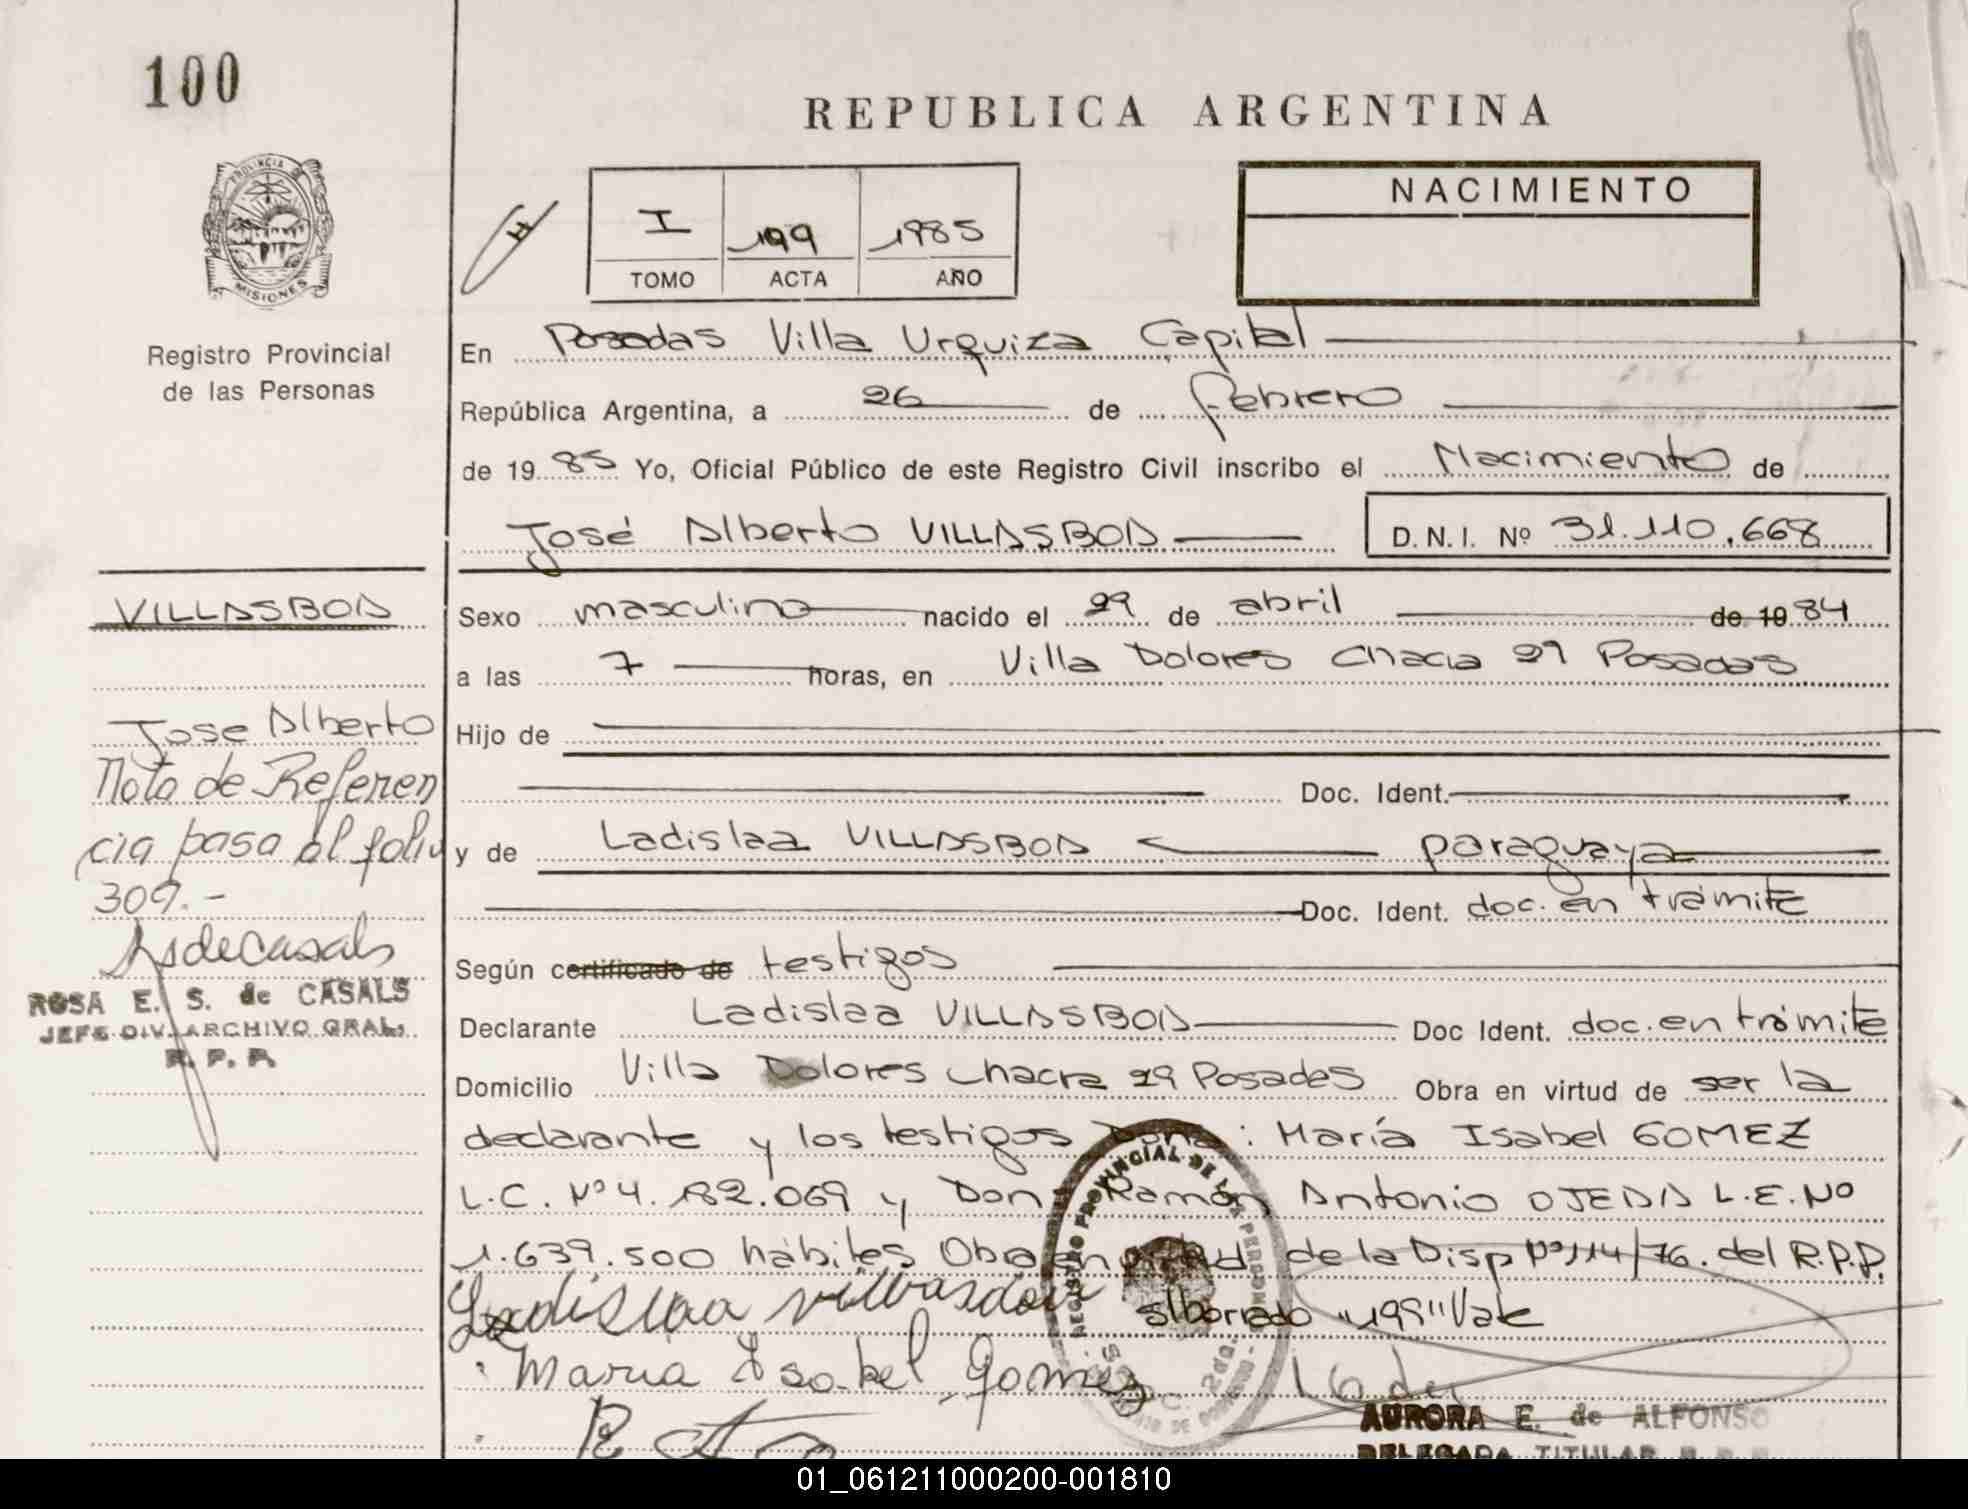 100
REPUBLICA ARGENTINA
PROVINCIA
MISIONES
Registro Provincial
de las Personas
I 199 1985
TOMO ACTA AÑO
NACIMIENTO
En Posadas Villa Urquiza Capital
República Argentina, a 26 de febrero
de 19 85 Yo, Oficial Público de este Registro Civil inscribo el Nacimiento de
José Alberto VILLASBOA D.N.I. Nº 31.110.668
VILLASBOA
Jose Alberto
Nota de Referen
cia pasa al folio
309.-
ROSA E. S. de CASALS
JEFE DIV. ARCHIVO GRAL.
R. P. P.
Sexo masculino nacido el 29 de abril de 19 84
a las 7 horas, en Villa Dolores Chacra 29 Posadas
Hijo de
Doc. Ident.
y de Ladislaa VILLASBOA paraguaya
Doc. Ident. doc. en trámite
Según certificado de testigos
Declarante Ladislaa VILLASBOA Doc Ident. doc. en trámite
Domicilio Villa Dolores Chacra 29 Posadas Obra en virtud de ser la
declarante y los testigos Doña: María Isabel GOMEZ
L.C. Nº 4.182.069 y Don Ramón Antonio OJEDA L.E. Nº
1.639.500 hábiles Obra en virtud de la Disp Nº 114/76. del R.P.P.
s/borrado "199" Vale
Ladislaa villasboa
Maria Isabel Gomez
REGISTRO PROVINCIAL DE LAS PERSONAS
AURORA E. de ALFONSO
DELEGADA TITULAR
01_061211000200-001810